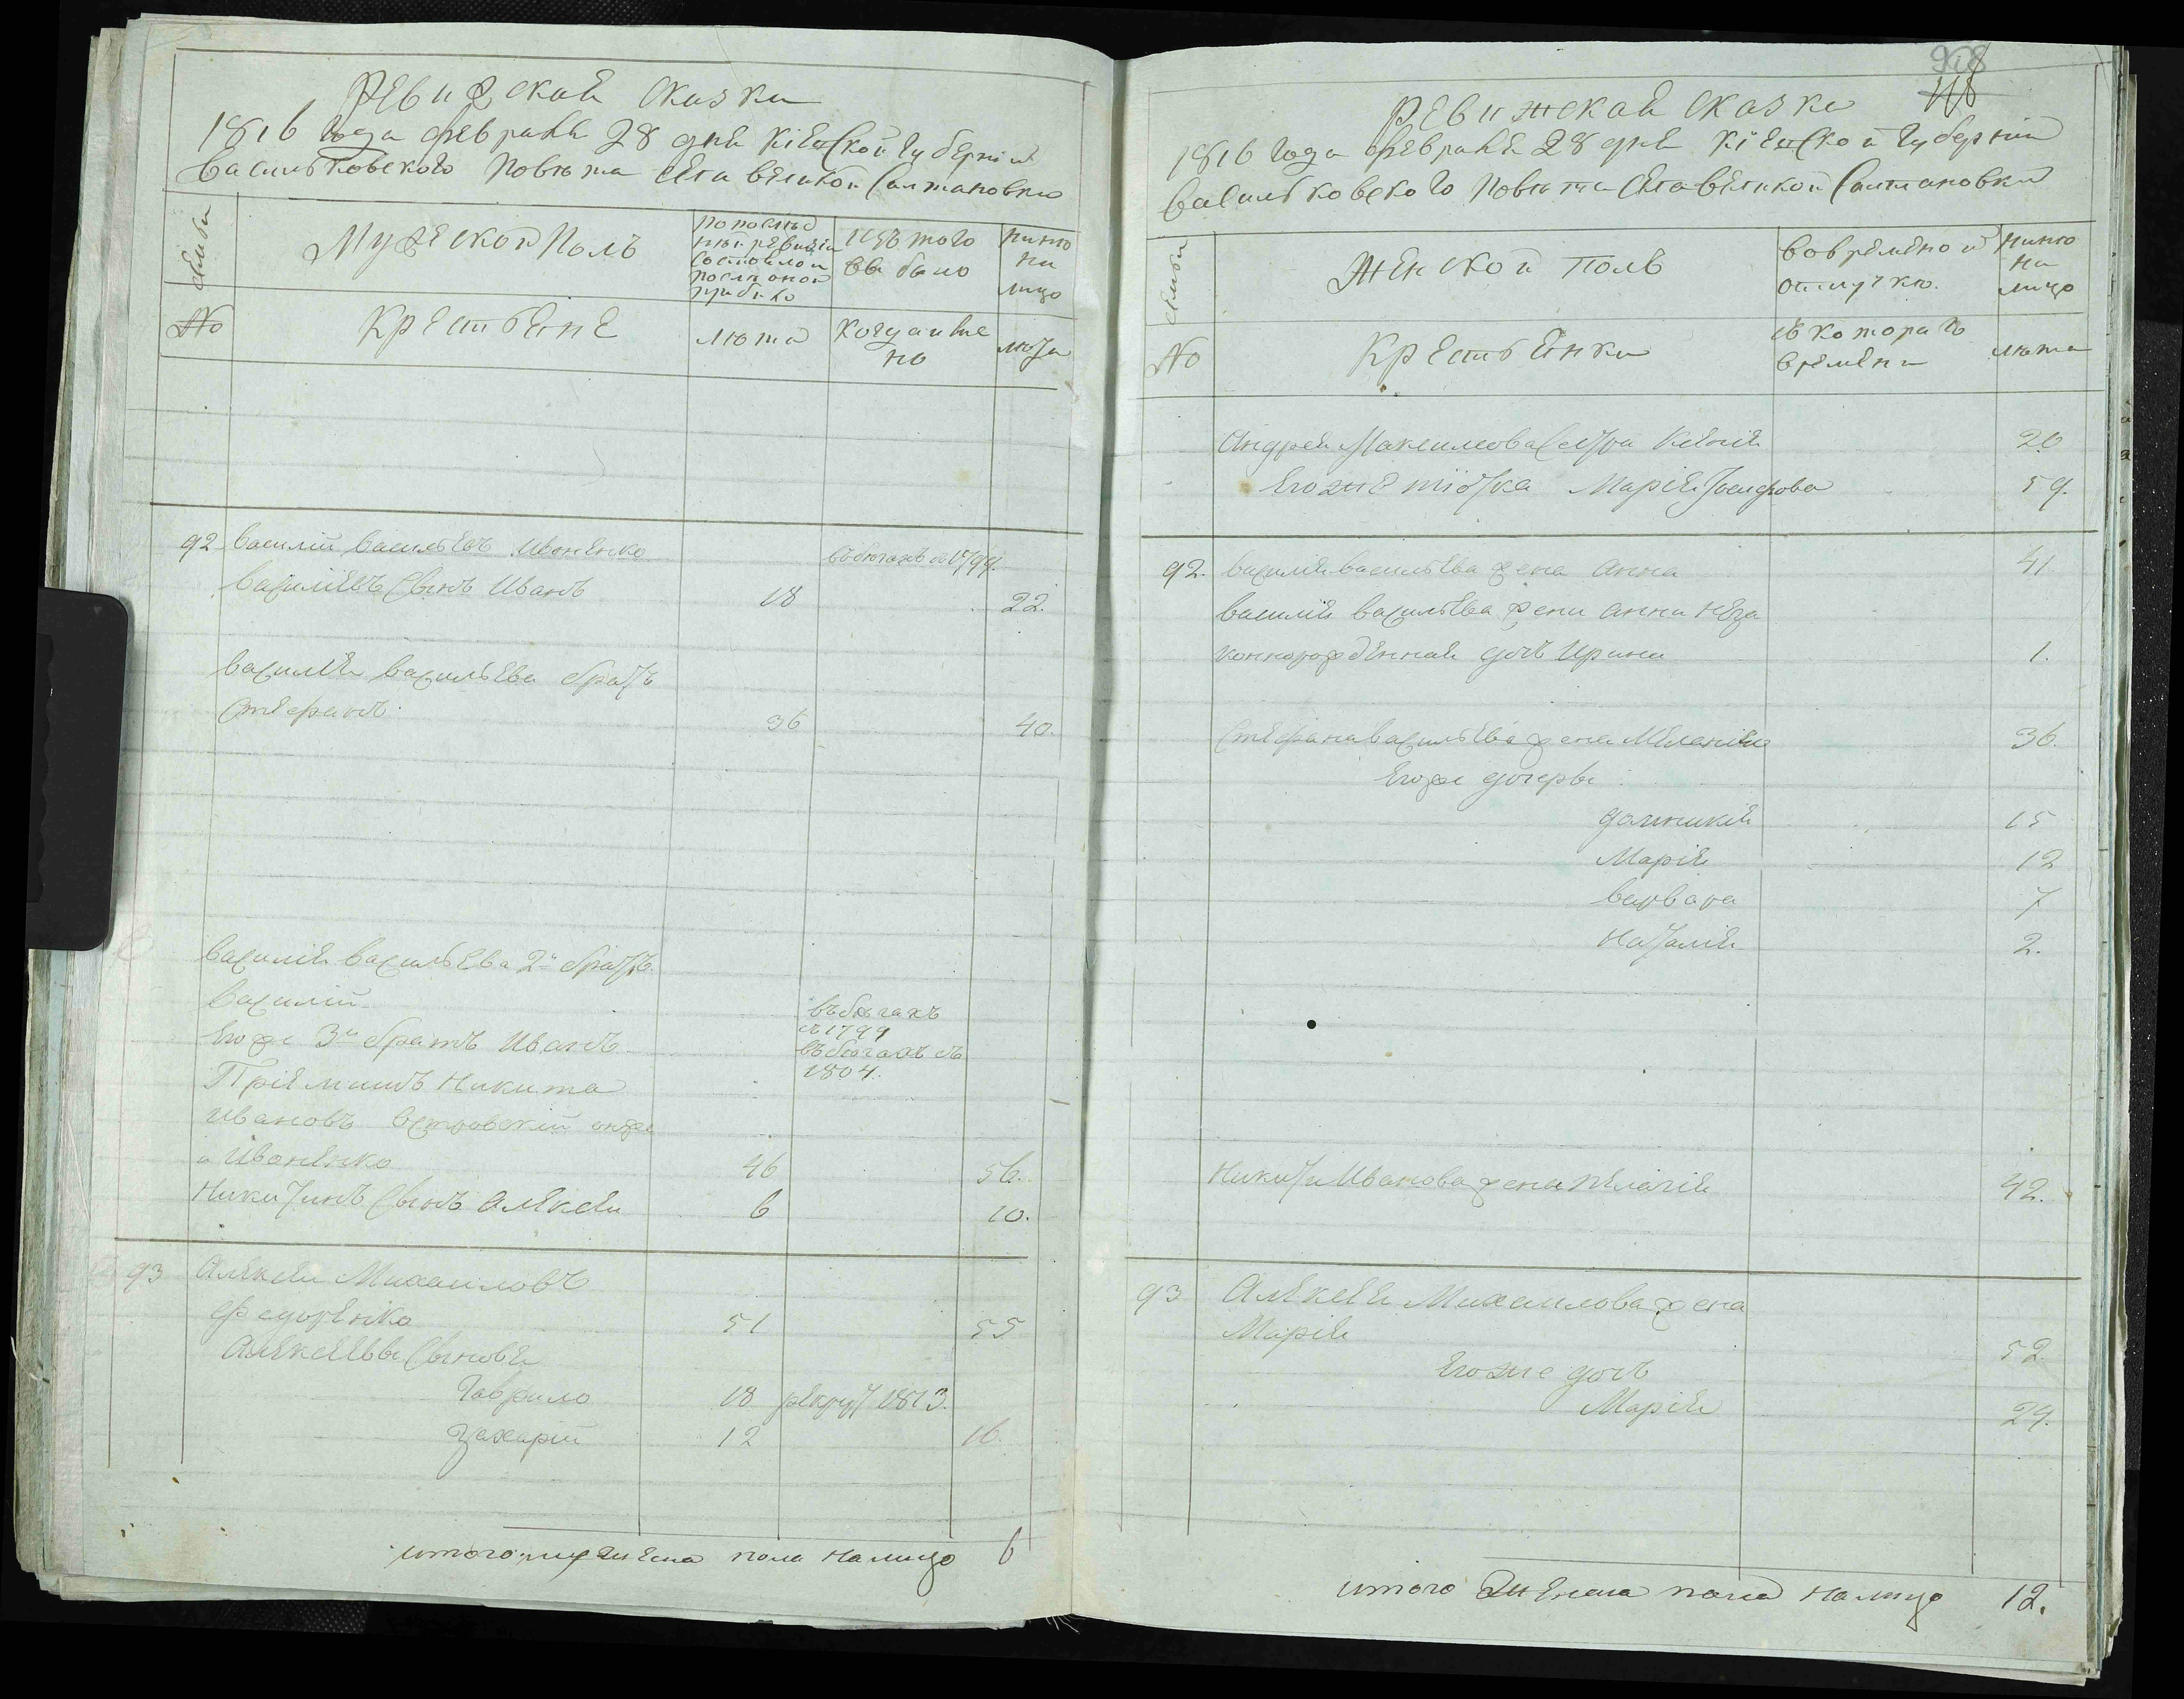 Ревизская сказка
1816 года февраля 28 дня Кіевской губерніи
Васильковского повета села великой Салтановки
семьи
Мужеской Полъ
по последней ревизіи состояло и после оной прибыло
изъ того выбыло
ныне на лицо
№
Крестьяне
лета
когда именно
лета
92 Василій Васильевъ Ивоненко въ бегахъ съ 1799.
Василіевъ Сынъ Иванъ 18 22.
Василія Васильева братъ
Стефанъ 36 40.
Василія Васильева 2й братъ
Василій въ бегахъ съ 1799
Егоже 3й братъ Иванъ въ бегахъ съ 1804.
Пріемышъ Никита
Ивановъ онже
и Ивоненко 46 50.
Никитинъ Сынъ Алексей 6 10.
93 Алексей Михаиловъ
Федоренко 51 55
Алексеевы Сыновья
Гаврило 18 рекрут 1813.
Захарій 12 16.
итого мужеска пола налицо 6
968
118
Ревижская сказка
1816 года февраля 28 дня Кіевской губерніи
Васильковского Повета Села великой Салтановки
семьи
Женской полъ
во временной отлучке.
ныне на лицо
№
Крестьянки
съ котораго времени
лета
Андрея Максимова Сестра 20
Егоже тіотка Марія Іосифова 59.
92. Василія Васильева жена Анна 41
Василія Васильева жены Анны неза
коннорожденная дочь Ирина 1.
Стефана Васильева жена Меланія 36.
Егоже дочеры
Домникія 15
Марія 12
Варвара 7
Наталія 2.
Никиты Иванова жена Пелагія 42.
93 Алексея Михаилова жена
Марія 52
Егоже дочь
Марія 29.
итого женска пола налицо 12.